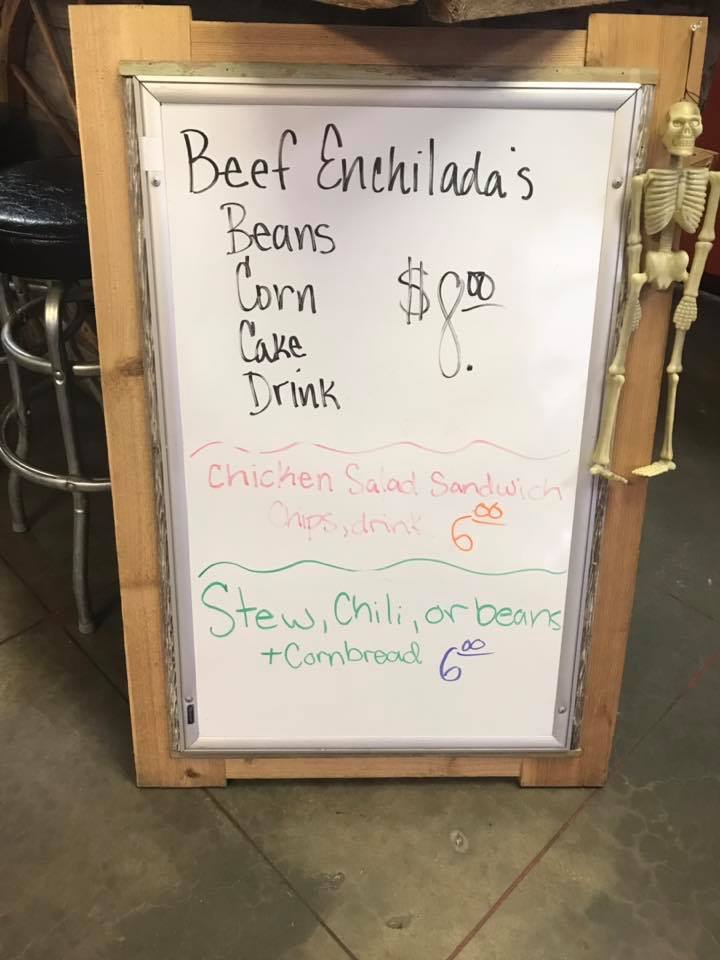 Beef Enchilada's
Beans
Corn
Cake
Drink
$8.00
Chicken Salad Sandwich
Chips, drink 6.00
Stew, Chili, or beans
+ Cornbread 6.00